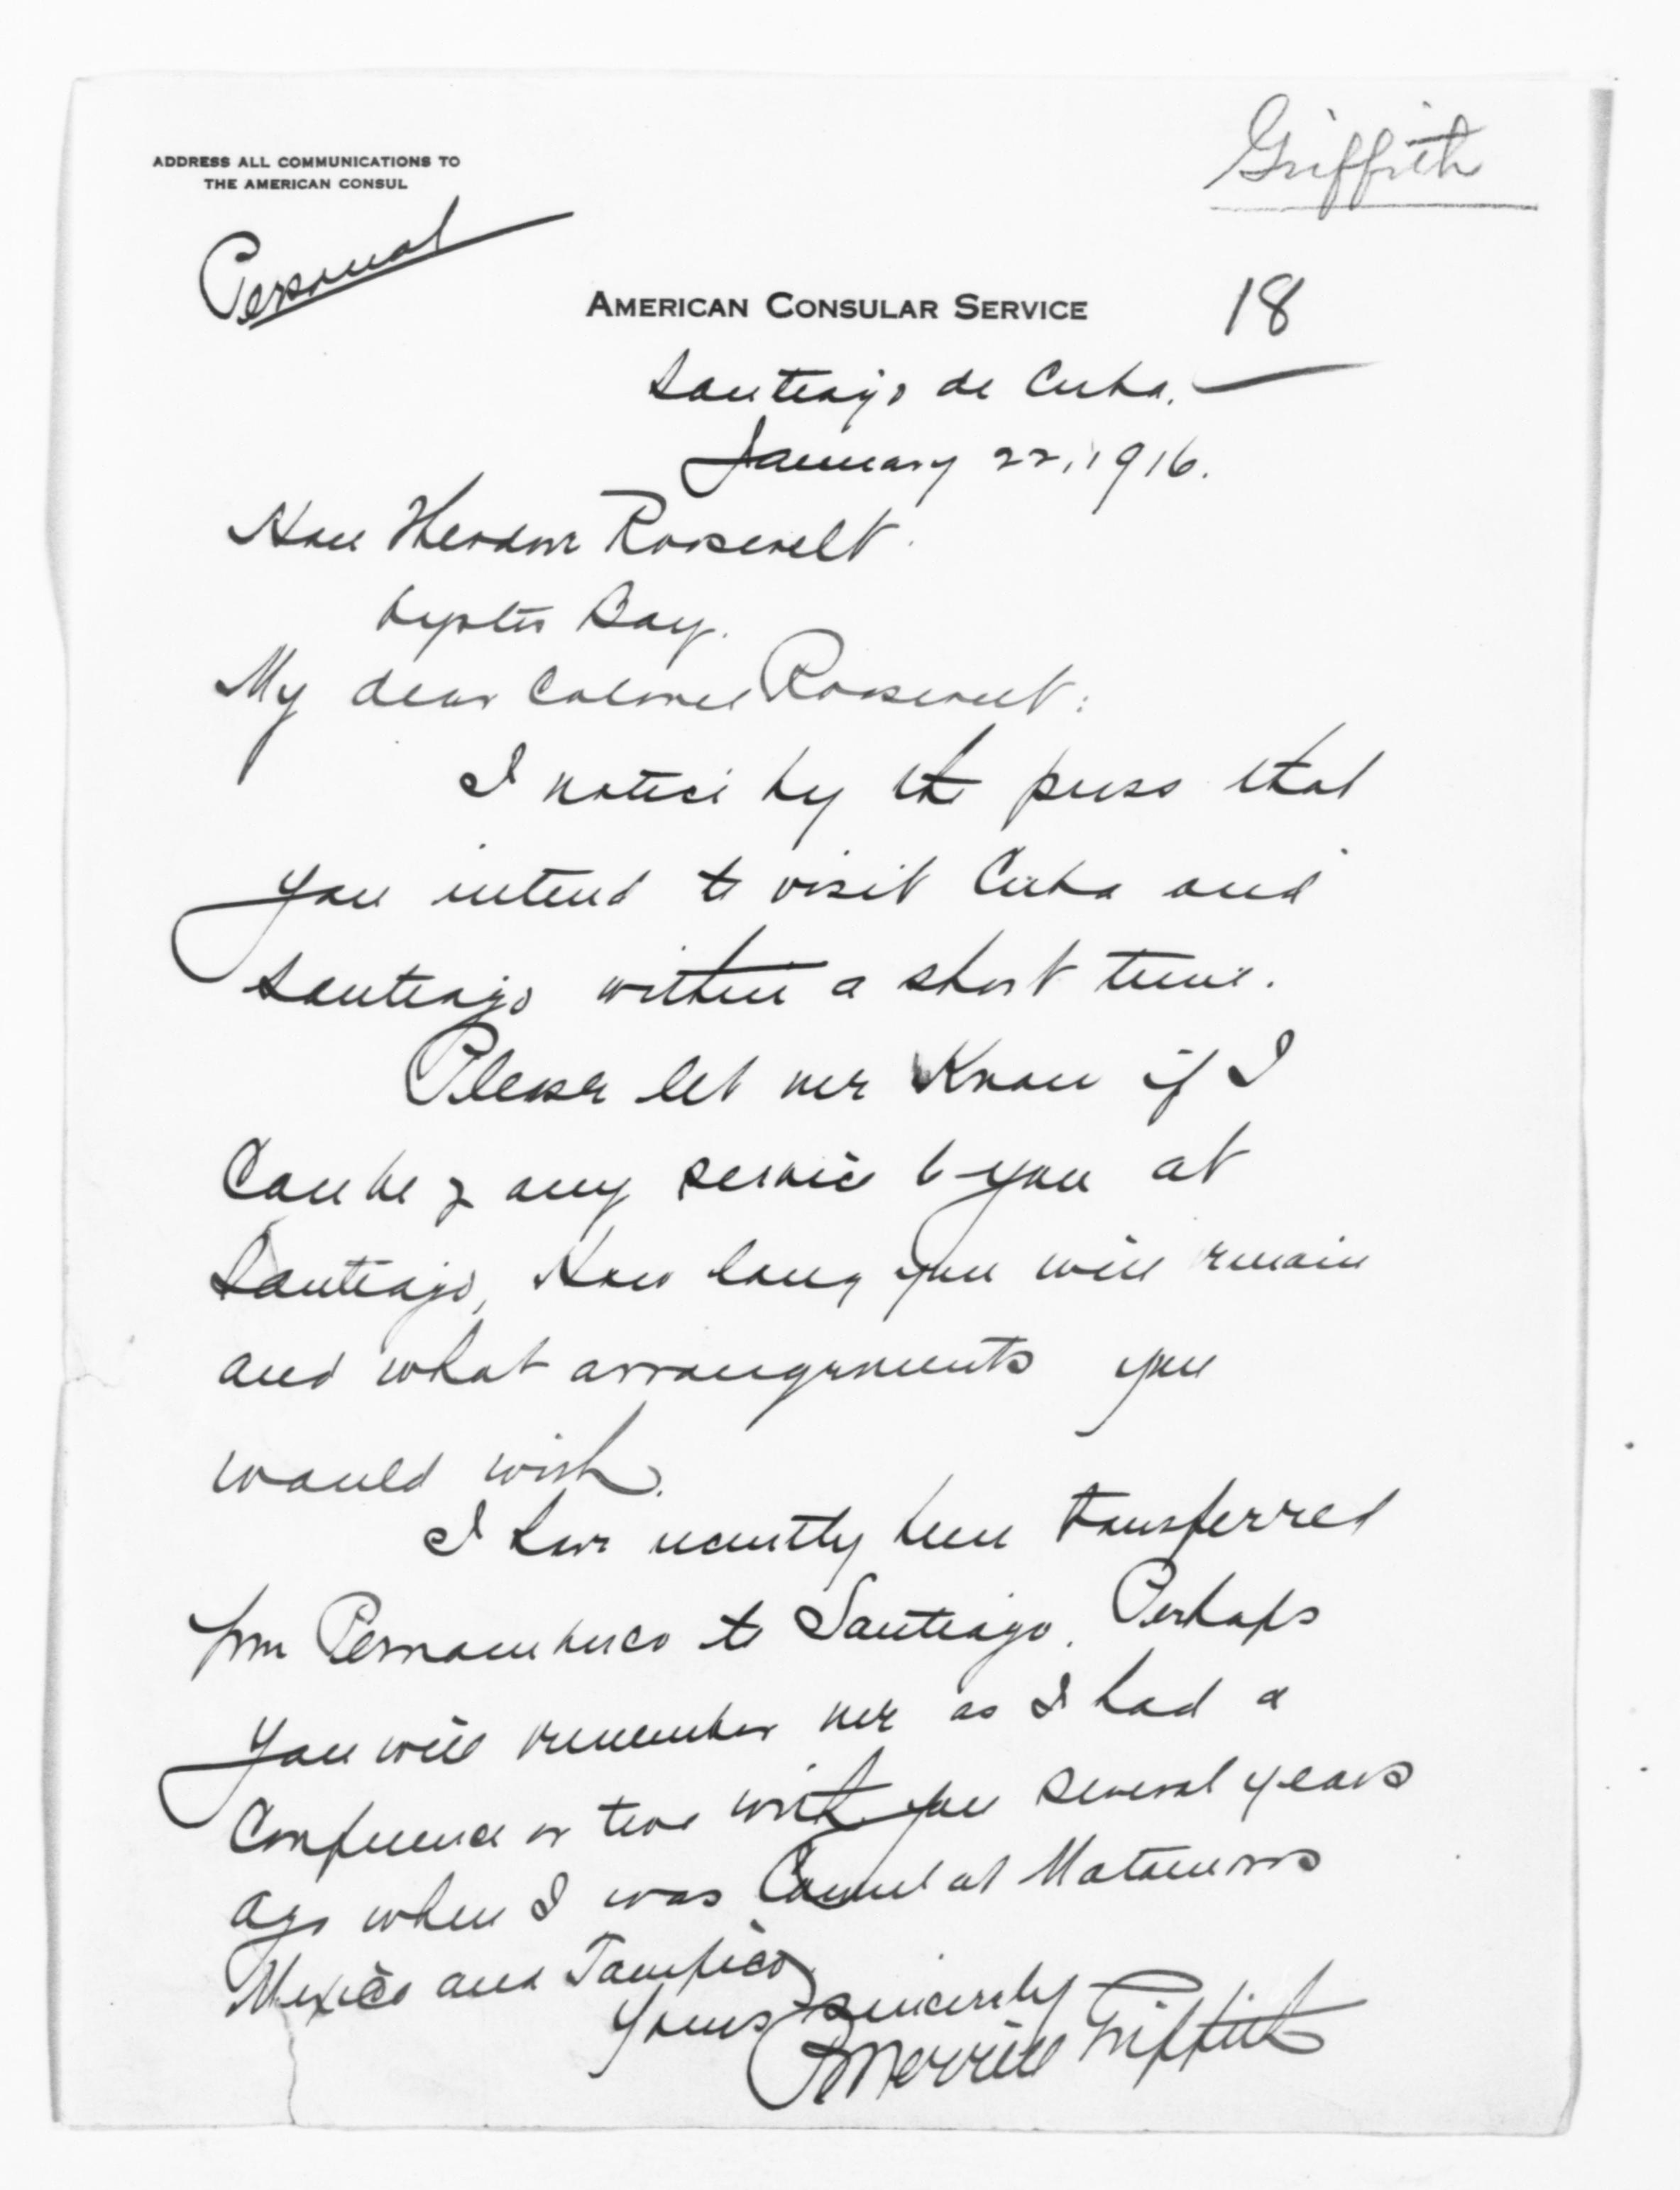 ADDRESS ALL COMMUNICATIONS TO
THE AMERICAN CONSUL
Griffith
Personal
AMERICAN CONSULAR SERVICE
18
Santiago de Cuba.
January 22, 1916.
Hon Theodore Roosevelt.
Oyster Bay.
My dear Colonel Roosevelt:
I notice by the press that
you intend to visit Cuba and
Santiago within a short time.
Please let me know if I
can be of any service to you at
Santiago, how long you will remain
and what arrangements you
would wish.
I have recently been transferred
from Pernambuco to Santiago. Perhaps
you will remember me as I had a
conference or two with you several years
ago when I was Consul at Matamoros
Mexico and Tampico.
Yours sincerely
P Merrill Griffith